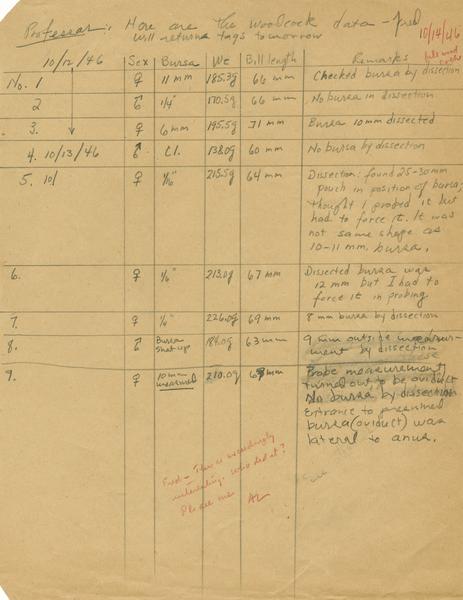 Professor: Here are the Woodcock data - Fred
Will return tags tomorrow
10/14/46
10/12/46 Sex Bursa We Bill length Remarks
No. 1 ♀ 11 mm 185.3g 66 mm Checked bursa by dissection
2 ♂ 1/4" 170.5g 66 mm No bursa in dissection
3. ♀ 6mm 195.5g 71 mm Bursa 10mm dissected
4. 10/13/46 ♂ Cl. 138.0g 60 mm No bursa by dissection
5. 10/ ♀ 1/16" 215.5g 64 mm Dissection: found 25-30mm
pouch in position of bursa;
thought I probed it but
had to force it. It was
not same shape as
10-11 mm. bursa.
6. ♀ 1/6" 213.0g 67 mm Dissected bursa was
12 mm but I had to
force it in probing
7. ♀ 1/6" 226.0g 69 mm 8 mm bursa by dissection
8. ♂ Bursa
shut up 184.0g 63 mm 9 mm outside measure-
ment by dissection
9. ♀ 10 mm
measured 210.0g 68 mm Probe measurement
turned out to be oviduct
No bursa by dissection
Entrance to presumed
bursa (oviduct) was
lateral to anus.
Fred - This is exceedingly
interesting. Who did it?
Please see me AL